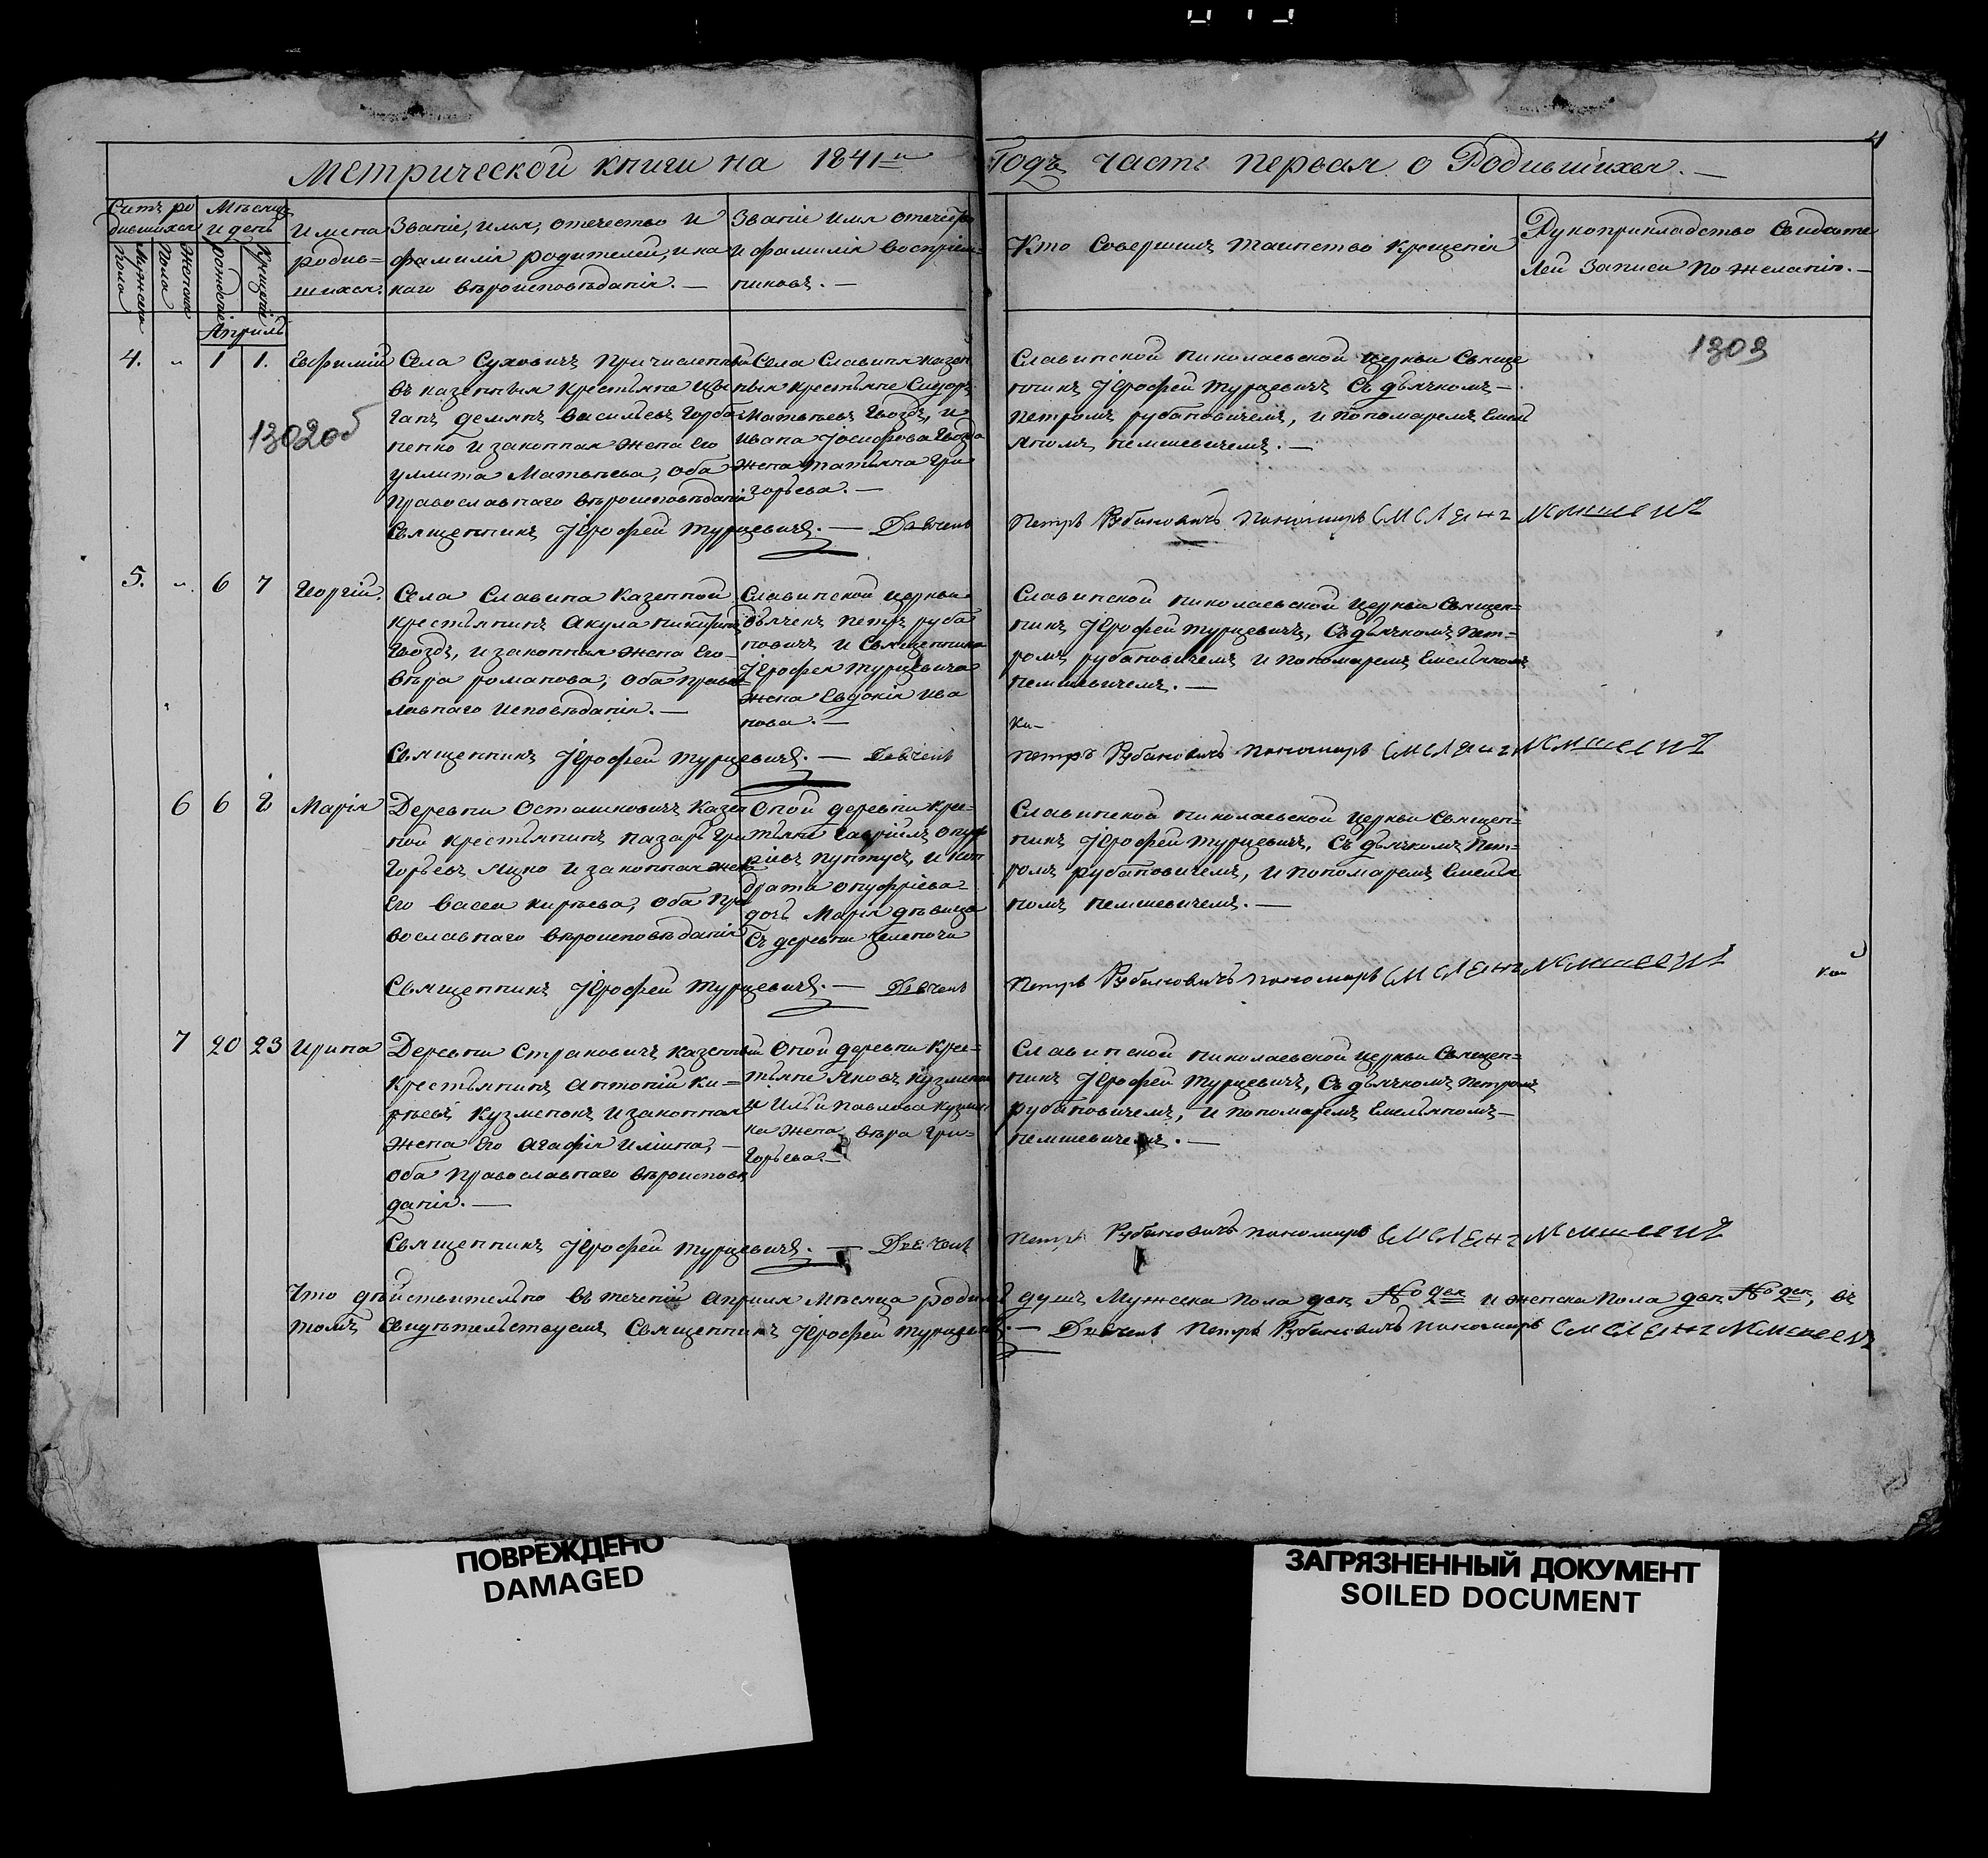 4
Метрической книги на 1841й Годъ часть первая о Родившихся. —
Счетъ ро
дившихся
Мужска
пола
Женска
Пола
Мѣсяцъ
и день
рожденіе
Крещеніе
Имена
родив=
шихся.
Званіе, имя, отечество и
фамилія родителей, и ка
каго вѣроисповѣданія. —
Званіе имя отечество
и фамилія воспріем=
никовъ. —
Кто Совершилъ таинство крещенія
Рукоприкладство Свидѣте
лей Записи по желанію. —
Апрѣль
1303
1302об
4. " 1 1. Евфимій
Села Суховичъ причисленный
въ казенныя крестьяне Цы
ганъ демянъ васильевъ Горба
ненко и законная жена Его
улита Матвѣева, оба
Православнаго вѣроисповѣданія
Села Славина казен
ныя крестьяне Сидоръ
Матвѣевъ Гвоздь, и
ивана Іосифова Гвоздя
жена татьяна Гри
горьева. —
Славинской николаевской церкви Свяще
нникъ Іерофей турцевичъ Съ дьячкомъ —
петромъ рубановичемъ, и пономаремъ Емель
яномъ немшевичемъ. —
Священникъ Іерофей турцевичъ. — Дьячекъ
Петръ Рубановичъ пономарь Емелянъ Немшевичъ
5. " 6 7 Георгій.
Села Славина Казенной
крестьянинъ Акула никифоровъ
Гвоздь, и законная жена Его
вѣра романова, оба Правос=
лавнаго исповѣданія. —
Славинской церкви
дьячекъ петръ руба
новичъ и Священника
Іерофея турцевича
жена Евдокія ива
нова. —
Славинской николаевской церкви Священ=
никъ Іерофей турцевичъ, Съ дьячкомъ пет=
ромъ рубановичемъ и пономаремъ Емельяномъ
немшевичемъ. —
Священникъ Іерофей турцевичъ. — Дьячекъ
Петръ Рубановичъ пономарь Емелянъ Немшевичъ
6 6 7 Марія
Деревни Осташковичъ Казен
ной крестьянинъ назаръ Гри
горьевъ Яцко и законная жена
Его васса кирѣева, оба Пра
вославнаго вѣроисповѣданія
Оной деревни крес=
тьяне Гавріилъ онуф
ріевъ пунтусъ, и кон
драта онуфріева
дочь Марія дѣвица
Съ деревни
Славинской николаевской церкви Священ=
никъ Іерофей турцевичъ, Съ дьячкомъ пет=
ромъ рубановичемъ, и пономаремъ Емелья
номъ немшевичемъ. —
Священникъ Іерофей турцевичъ. — Дьячекъ
Петръ Рубановичъ пономарь Емелянъ Немшевичъ
7 20 23 Ирина
Деревни Страковичъ казенный
крестьянинъ Антоній Ки=
рѣевъ Кузменокъ и законная
жена Его Агафія Иліина, —
оба Православнаго вѣроисповѣ
данія. —
Оной деревни крес=
тьяне Яковъ Кузменокъ
и Ильи павлова кузмен
ка жена вѣра Гри=
горьева. —
Славинской николаевской церкви Священ=
никъ Іерофей турцевичъ, Съ дьячкомъ петромъ
рубановичемъ, и пономаремъ Емельяномъ —
немшевичемъ. —
Священникъ Іерофей турцевичъ. — Дьячекъ
Петръ Рубановичъ пономарь Емелянъ Немшевичъ
Что дѣйствительно въ теченіи Апрѣля Мѣсяца родилось душъ Мужеска пола двѣ № 2ва и женска пола двѣ № 2ва, въ
томъ Свидѣтельствуемъ Священникъ Іерофей турцевичъ. — Дьячекъ Петръ Рубановичъ пономарь Емелянъ Немшевичъ
ПОВРЕЖДЕНО
DAMAGED
ЗАГРЯЗНЕННЫЙ ДОКУМЕНТ
SOILED DOCUMENT